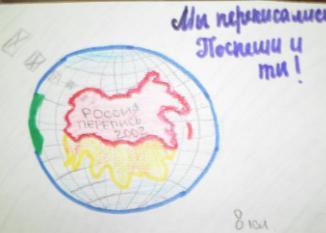 Мы переписались
Поспеши и
ты!
РОССИЯ
ПЕРЕПИСЬ
2002
8 кл